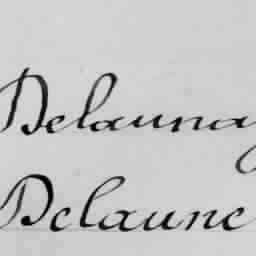 Delaunay
Delaune